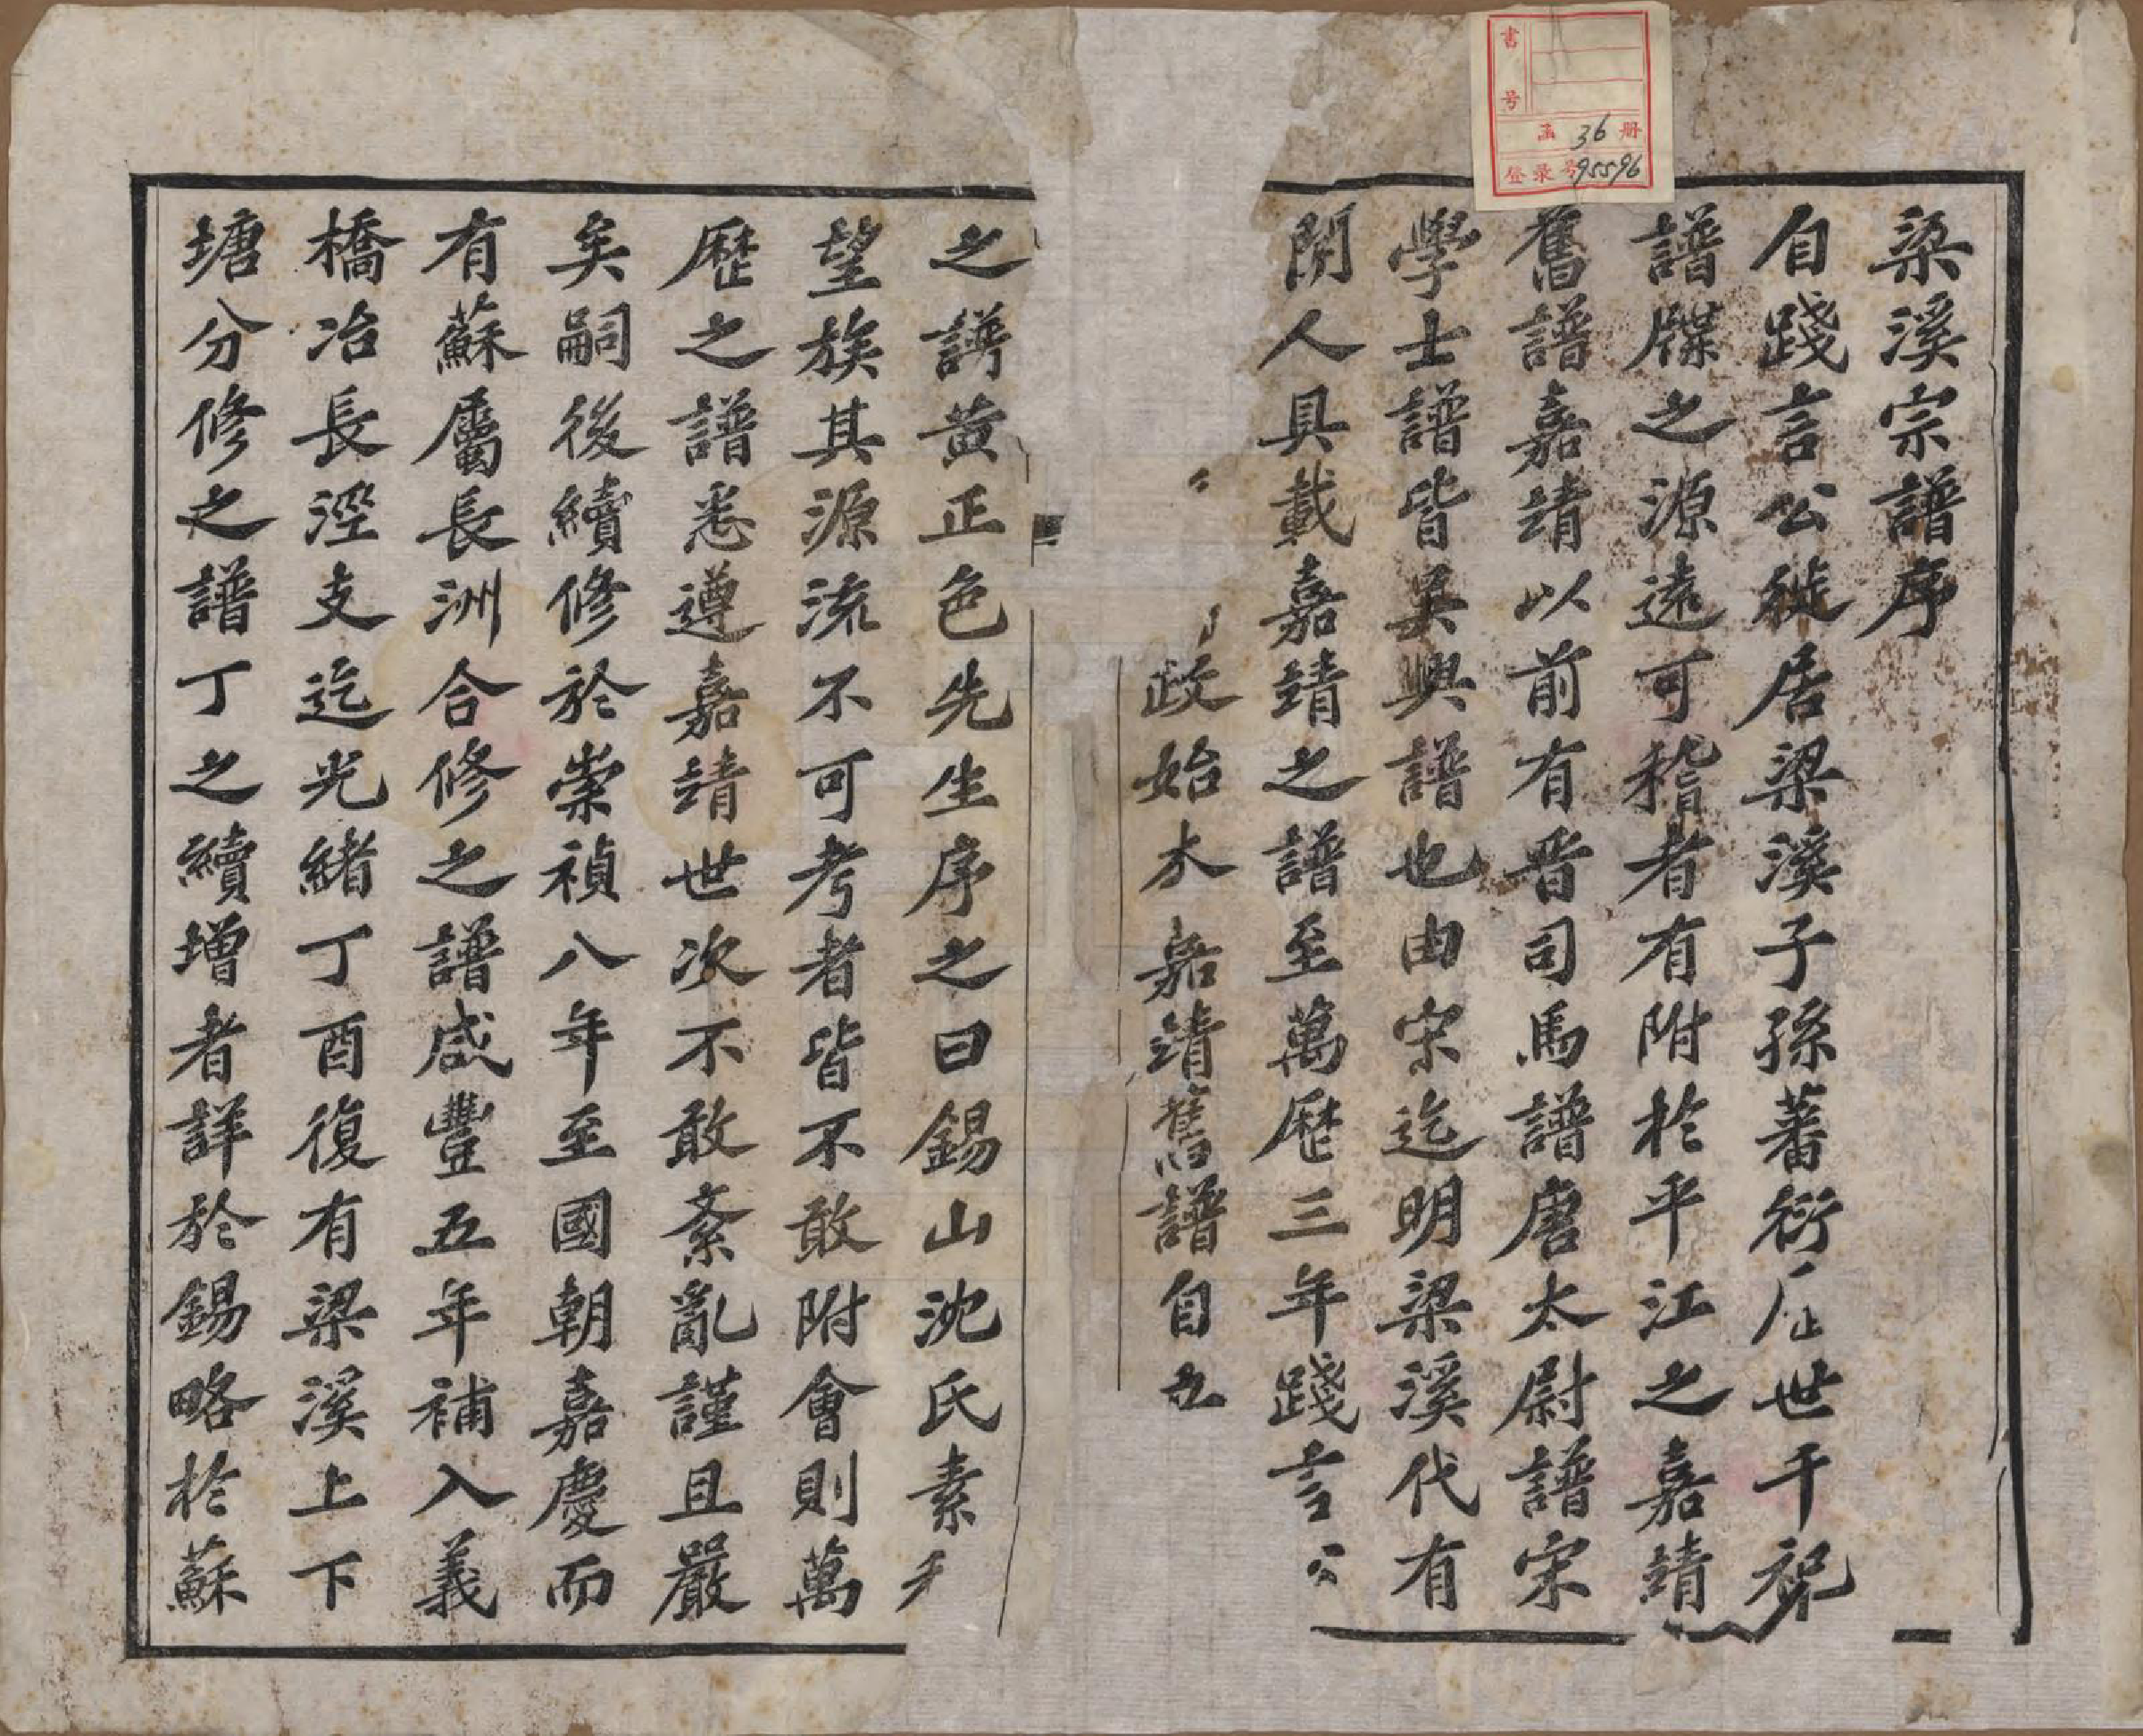 梁溪宗譜序
自踐言公徙居梁溪子孫蕃衍世千祀
譜牒之源遠可稽者有附於平江之嘉靖
舊譜嘉靖以前有晋司馬譜唐太尉譜宋
學士譜皆吳興譜也由宋迄明梁溪代有
聞人具載嘉靖之譜至萬歷三年踐言公
政始本嘉靖舊譜自
之譜黄正色先生序之曰錫山沈氏素
望族其源流不可考者皆不敢附會則萬
歷之譜悉遵嘉靖世次不敢紊亂謹且嚴
矣嗣後續修於崇禎八年至國朝嘉慶而
有蘇屬長洲合修之譜咸豐五年補入義
橋冶長涇支迄光緒丁酉復有梁溪上下
塘分修之譜丁之續增者詳於錫略於蘇
書号
函 36 册
登录号 95596